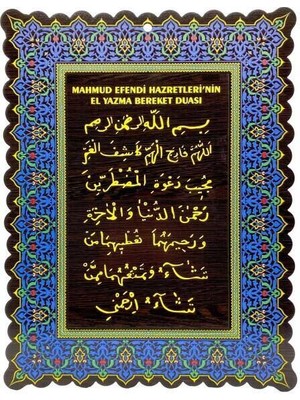 MAHMUD EFENDİ HAZRETLERİ'NİN
EL YAZMA BEREKET DUASI
بسم الله الرحمن الرحيم
اَللّٰهُمَّ فَارِجَ الْهَمِّ كَاشِفَ الْغَمِّ
مُجِيبَ دَعْوَةِ الْمُضْطَرِّينَ
رَحْمٰنَ الدُّنْيَا وَالْاٰخِرَةِ
وَرَحِيمَهُمَا تُعْطِيهِمَا مَنْ
تَشَاءُ وَتَمْنَعُهُمَا مِمَّنْ
تَشَاءُ اِرْحَمْنِي